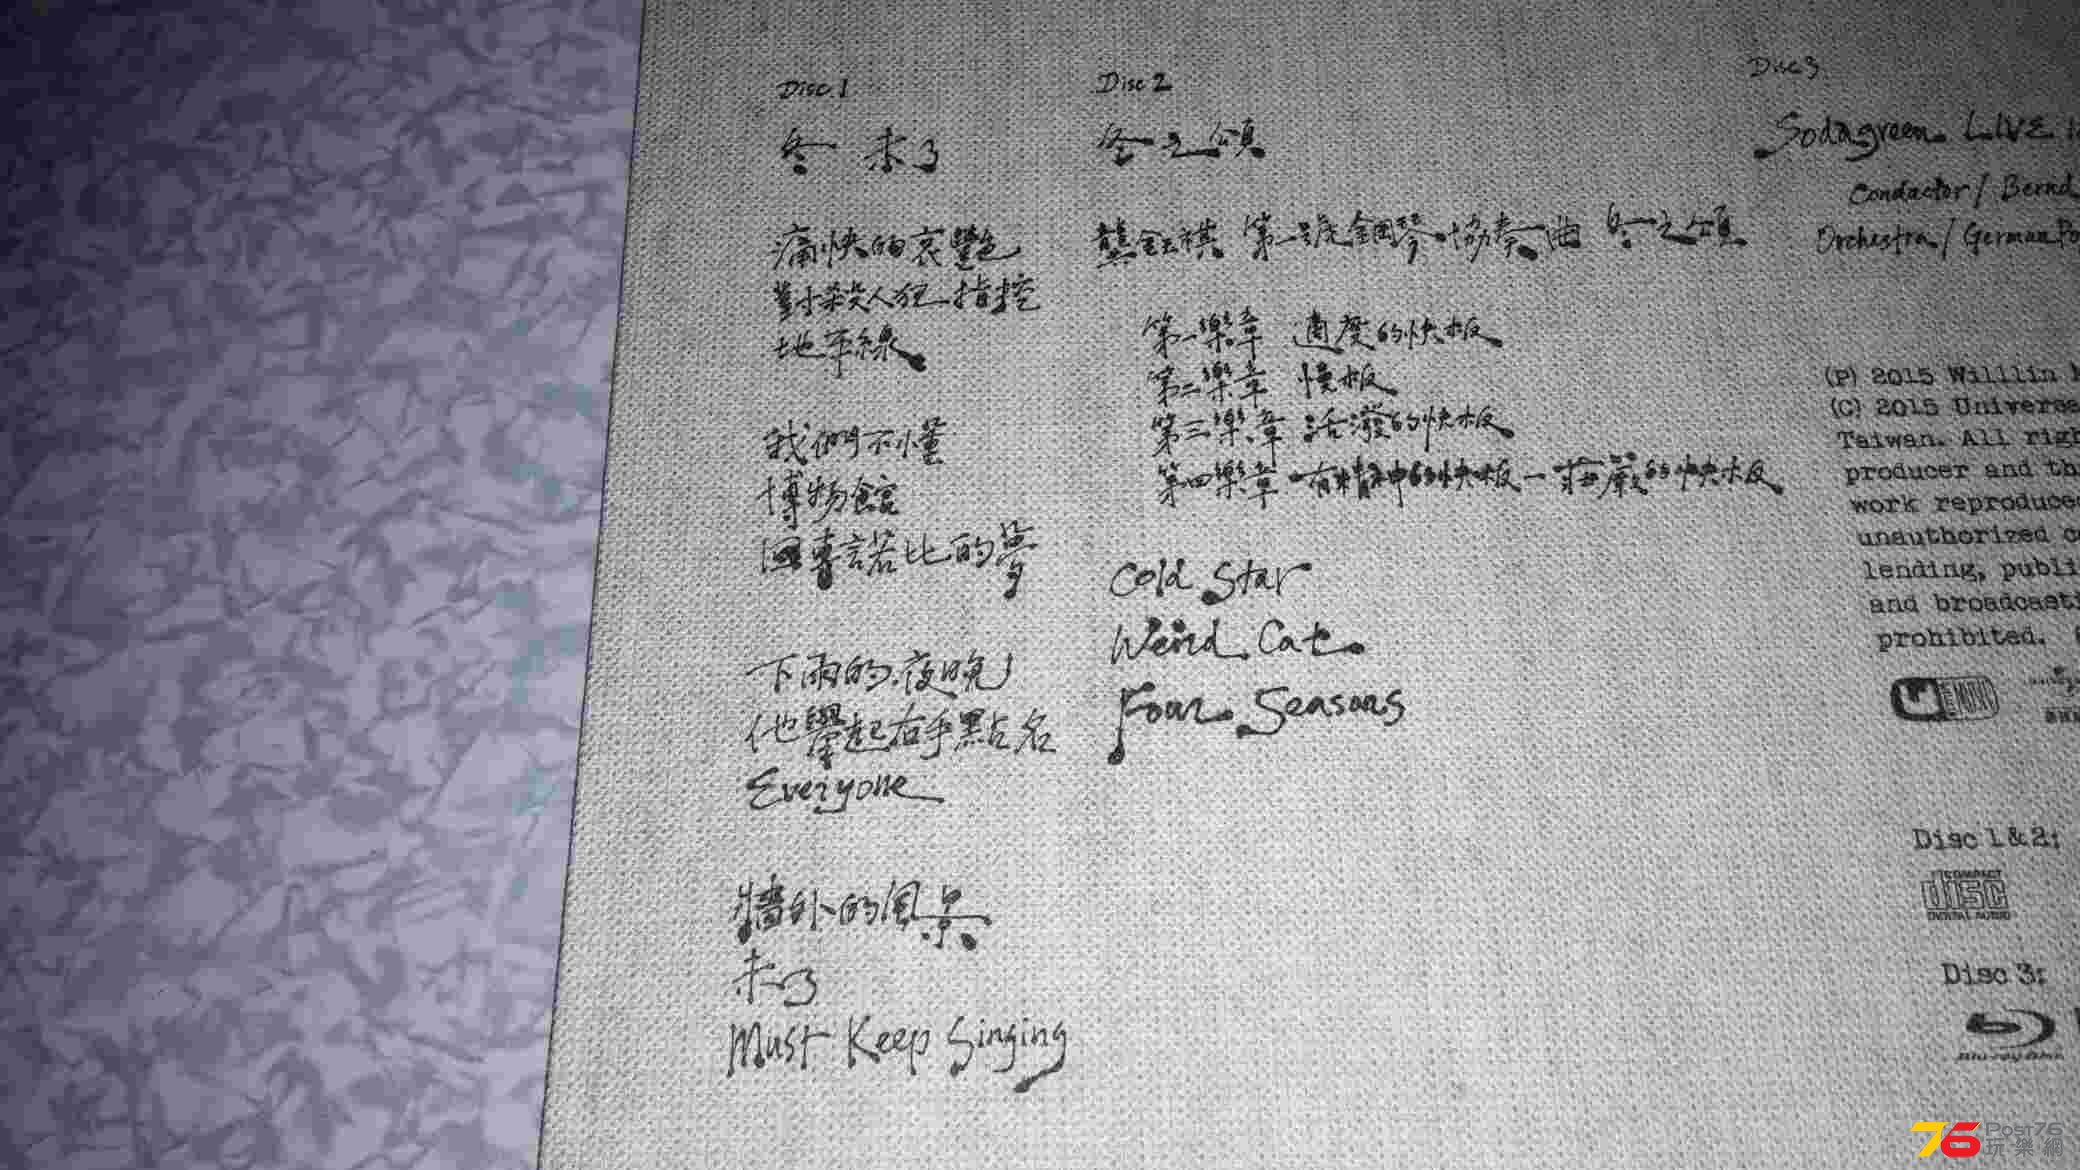 Disc 1
冬 未了
痛快的哀艷
對殺人狂指控
地平線
我們不懂
博物館
回車諾比的夢
下雨的夜晚
他舉起右手點名
Everyone
牆外的風景
未了
Must Keep Singing
Disc 2
冬之頌
龔鈺祺 第一號鋼琴協奏曲 冬之頌
第一樂章 適度的快板
第二樂章 慢板
第三樂章 活潑的快板
第四樂章 有精神的快板－莊嚴的快板
Cold Star
Weird Cat
Four Seasons
Disc 3
Sodagreen LIVE
Conductor / Bernd
Orchestra / German Po
(P) 2015 Willlin
(C) 2015 Univers
Taiwan. All righ
producer and th
work reproduce
unauthorized c
lending, publi
and broadcasti
prohibited.
Disc 1 & 2:
COMPACT
disc
DIGITAL AUDIO
Disc 3:
Blu-ray Disc
76 Post76
玩樂網